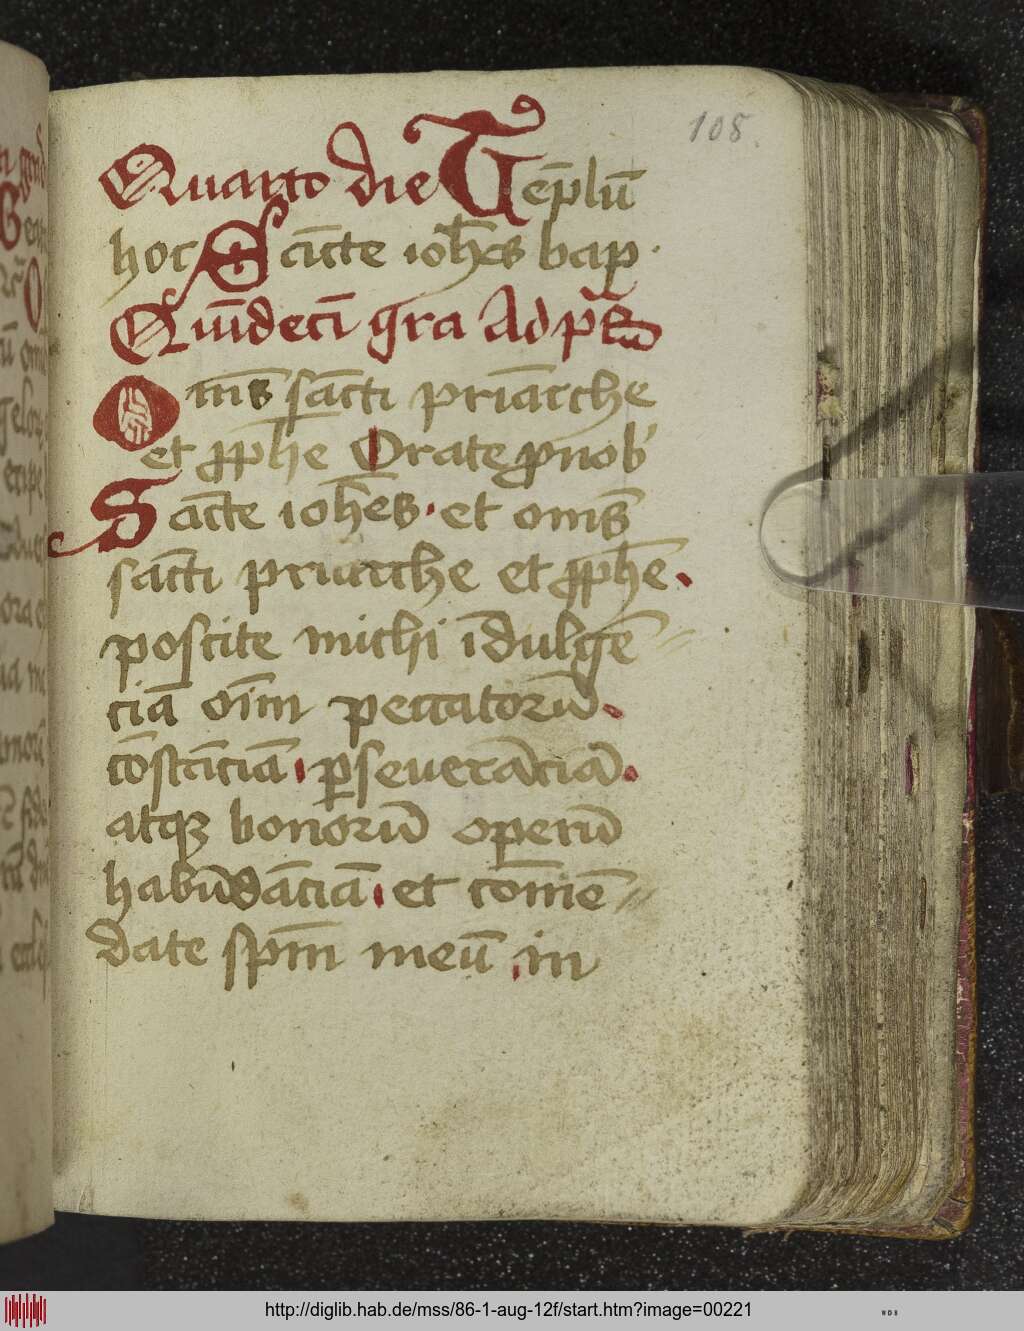 108.
Quarto die Te̅plu̅
hoc Sa̅cte ioh̅es bap.
Qui̅deci̅ gra Ad p̅r̅m̅
Om̅s sa̅cti pria̅rche
et ꝓph̅e Orate ꝓ nob'
Sa̅cte ioh̅es. et om̅s
sa̅cti priarche et ꝓph̅e.
poscite michi i̅dulge̅⸗
cia̅ oi̅m peccatoru̅.
co̅sta̅cia̅. ꝑseuera̅cia̅.
atqꝫ bonoru̅ operu̅
habu̅da̅cia̅. et co̅me̅⸗
date sp̅m meu̅ in
http://diglib.hab.de/mss/86-1-aug-12f/start.htm?image=00221